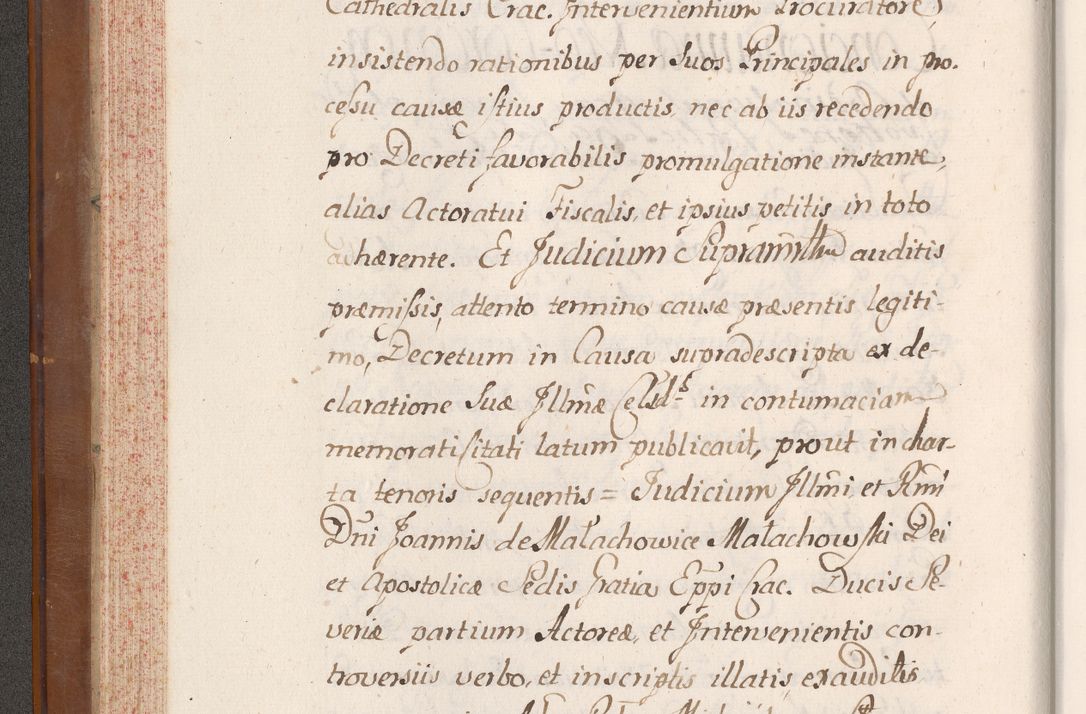 Cathedralis Crac. Intervenientium Procuratore
insistendo rationibus per Suos Principales in pro-
cessu causæ istius productis nec ab iis recedendo
pro Decreti favorabilis promulgatione instante,
alias Actoratui Fiscalis, et ipsius petitis in toto
adhærente. Et Judicium Supramtllu auditis
præmissis, attento termino causæ præsentis legiti-
mo, Decretum in Causa supradescripta ex de-
claratione Suæ Illmæ Celsd.s in contumaciam
memorati Citati latum publicavit, prout in char-
ta tenoris sequentis = Judicium Illmi et Rmi
Dni Joannis de Małachowice Małachowski Dei
et Apostolicæ Sedis Gratia Eppi Crac. Ducis Se-
veriæ partium Actoreæ, et Intervenientis con-
troversiis verbo, et in scriptis illatis exauditis